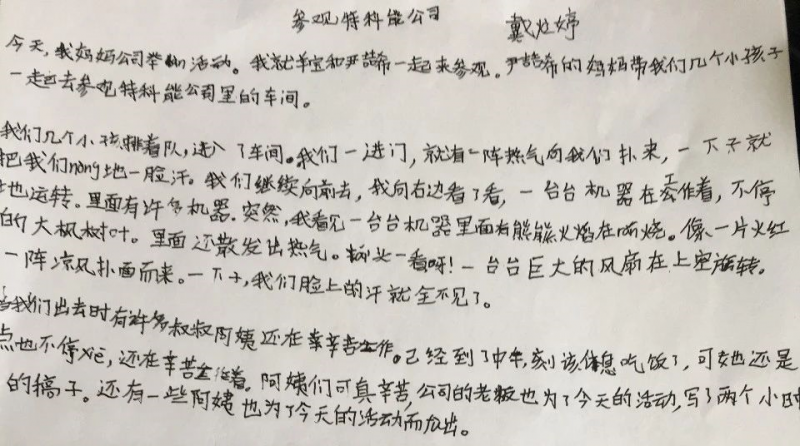 参观特科能公司 戴灶婷
今天,我妈妈公司举办活动。我就羊宝和尹喆希一起来参观。尹喆希的妈妈带我们几个小孩子
一起去参观特科能公司里的车间。
我们几个小孩排着队,进入了车间。我们一进门,就有一阵热气向我们扑来,一下子就
把我们nong地一脸汗。我们继续向前去,我向右边看了看,一台台机器在工作着,不停
地运转。里面有许多机器。突然,我看见一台台机器里面有熊熊火焰在燃烧。像一片火红
的大枫树叶。里面还散发出热气。抬头一看呀!一台台巨大的风扇在上空旋转。
一阵凉风扑面而来。一下子,我们脸上的汗就全不见了。
当我们出去时有许多叔叔阿姨还在辛苦工作。已经到了中午,刻该休息吃饭了,可她还是
点也不停xie,还在辛苦工作着。阿姨们可真辛苦,公司的老板也为了今天的活动,写了两个小时
的稿子。还有一些阿姨也为了今天的活动而付出。